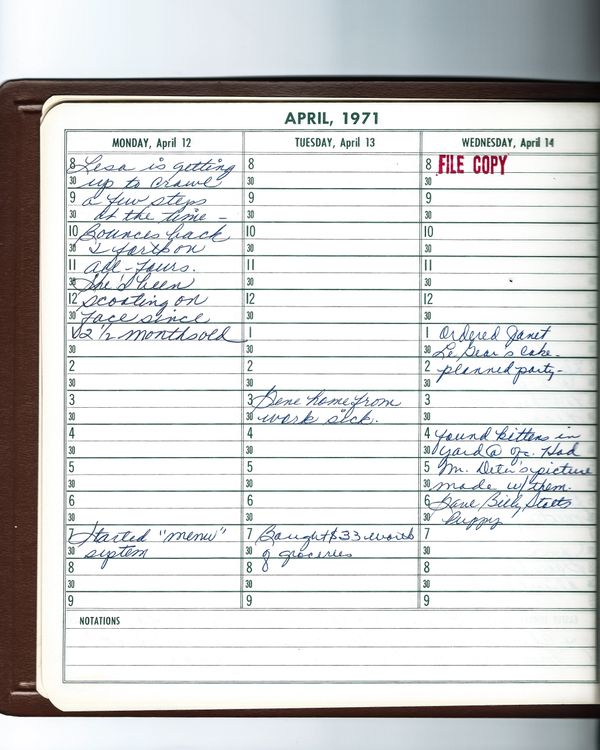 APRIL, 1971
MONDAY, April 12
8 Lesa is getting
30 up to crawl
9 a few steps
30 at the time -
10 Bounces back
30 & forth on
11 all-fours.
30 She'd been
12 scooting on
30 face since
1 2 1/2 months old
30
2
30
3
30
4
30
5
30
6
30
7 Started "menu"
30 system
8
30
9
TUESDAY, April 13
8
30
9
30
10
30
11
30
12
30
1
30
2
30
3 Gene home from
30 work sick.
4
30
5
30
6
30
7 Bought $33 worth
30 of groceries
8
30
9
WEDNESDAY, April 14
8 FILE COPY
30
9
30
10
30
11
30
12
30
1 Ordered Janet
30 Le Gear's cake-
2 planned party-
30
3
30
4 Found kittens in
30 yard @ ofc. Had
5 M. Deter's picture
30 made w/ them.
6 Gave Billy Statts
30 puppy
7
30
8
30
9
NOTATIONS